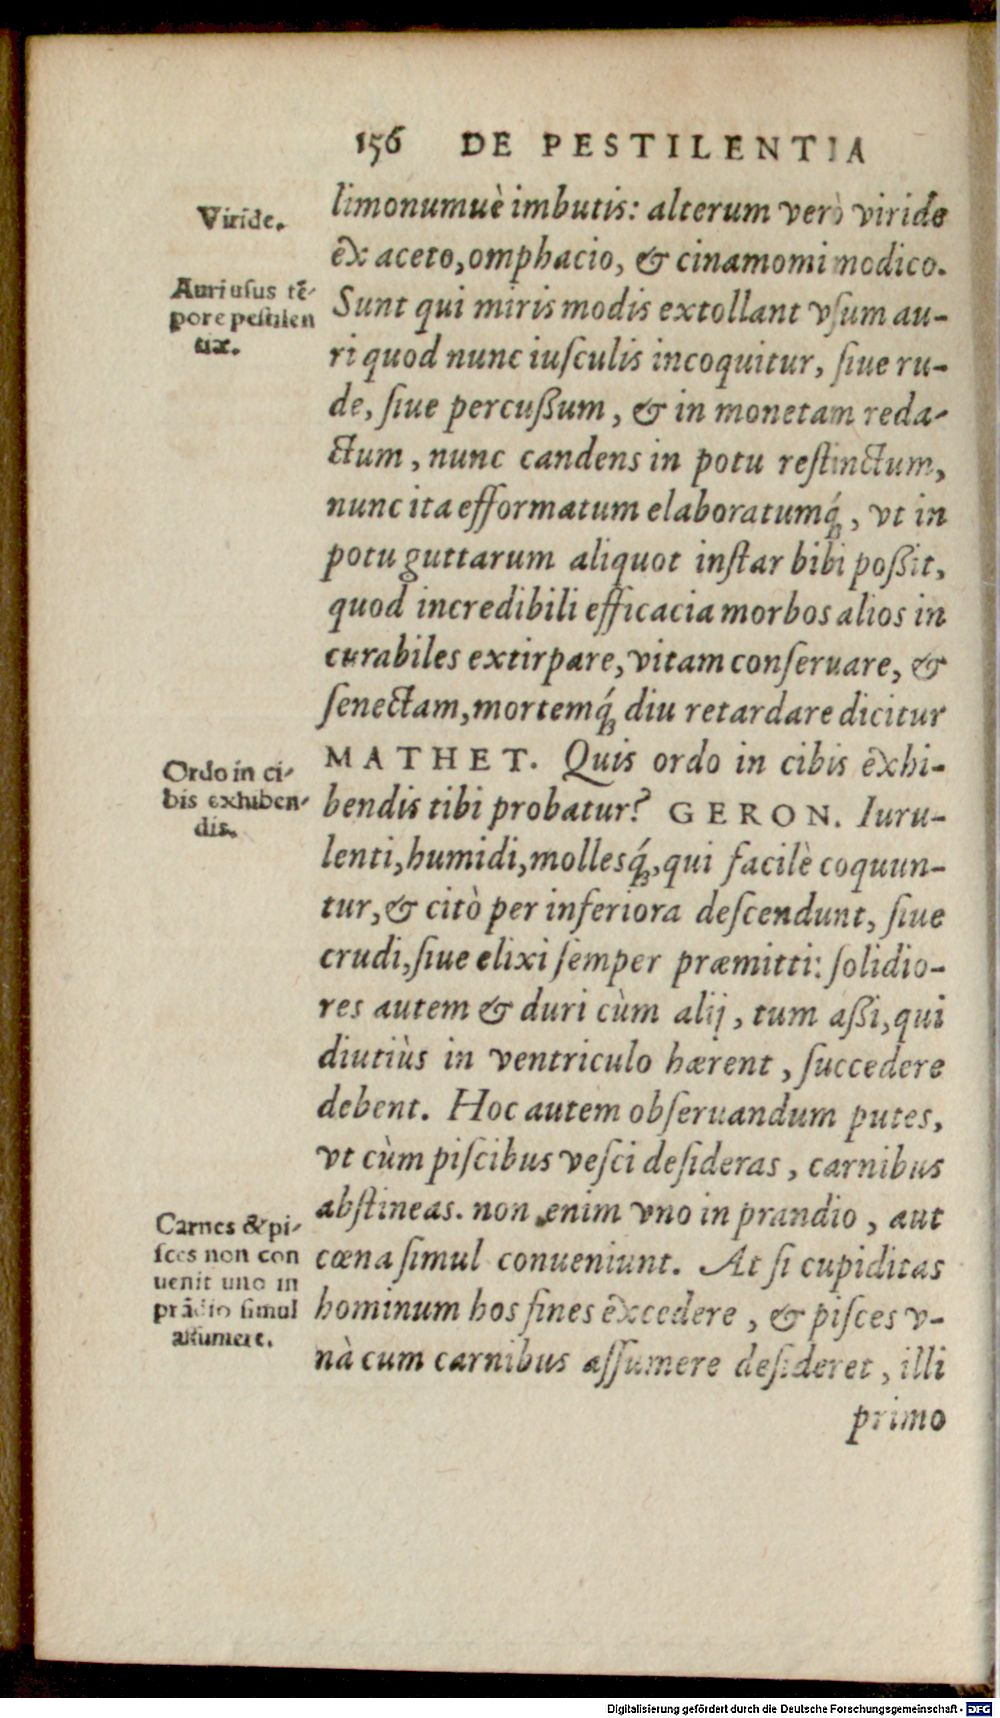 156 DE PESTILENTIA
Viride.
limonumuè imbutis: alterum verò viride
ex aceto, omphacio, & cinamomi modico.
Auri usus tē-
pore pestilen
tiæ.
Sunt qui miris modis extollant vſum au-
ri quod nunc iuſculis incoquitur, ſiue ru-
de, ſiue percuſſum, & in monetam reda-
ctum, nunc candens in potu reſtinctum,
nunc ita efformatum elaboratumq́;, vt in
potu guttarum aliquot inſtar bibi poſſit,
quod incredibili efficacia morbos alios in
curabiles extirpare, vitam conſeruare, &
ſenectam, mortemq́; diu retardare dicitur
Ordo in ci-
bis exhiben-
dis.
MATHET. Quis ordo in cibis exhi-
bendis tibi probatur? GERON. Iuru-
lenti, humidi, mollesq́;, qui facilè coquun-
tur, & citò per inferiora deſcendunt, ſiue
crudi, ſiue elixi ſemper præmitti: ſolidio-
res autem & duri cùm alij, tum aſſi, qui
diutiùs in ventriculo hærent, ſuccedere
debent. Hoc autem obſeruandum putes,
vt cùm piſcibus veſci deſideras, carnibus
Carnes & pi-
ſces non con
uenit uno in
prādio ſimul
aſſumere.
abſtineas. non enim vno in prandio, aut
cœna ſimul conueniunt. At ſi cupiditas
hominum hos fines excedere, & piſces v-
nà cum carnibus aſſumere deſideret, illi
primo
Digitalisierung gefördert durch die Deutsche Forschungsgemeinschaft - DFG